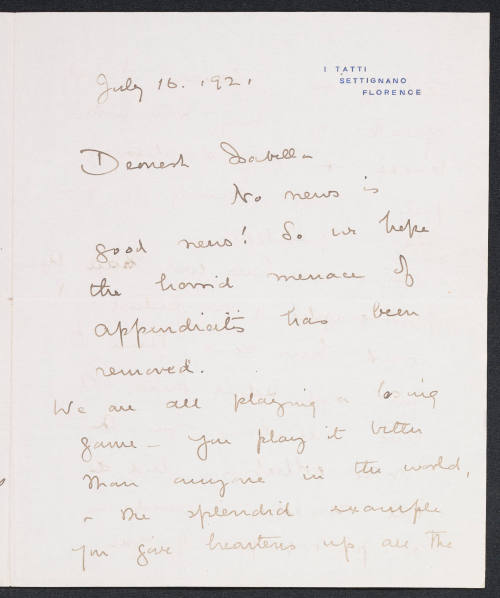 I TATTI
SETTIGNANO
FLORENCE
July 16. 1921
Dearest Isabella
No news is
good news! So we hope
the horrid menace of
appendicitis has been
removed.
We are all playing a losing
game — You play it better
than anyone in the world,
& the splendid example
you give heartens up all the